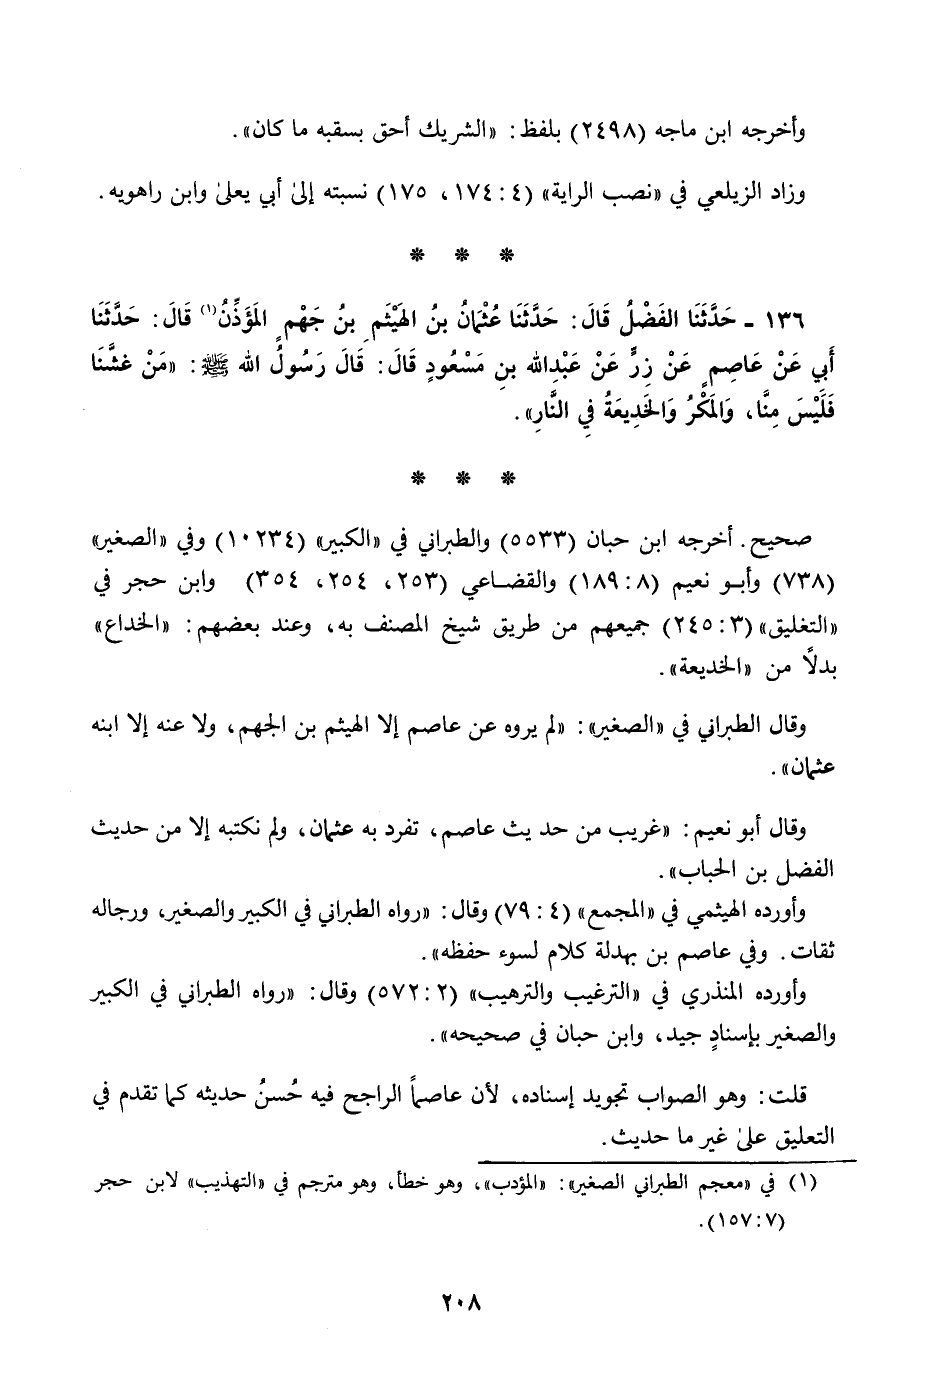 وأخرجه ابن ماجه (٢٤٩٨) بلفظ: «الشريك أحق بسقبه ما كان».
وزاد الزيلعي في «نصب الراية» (٤: ١٧٤، ١٧٥) نسبته إلىٰ أبي يعلىٰ وابن راهويه.
* * *
١٣٦ ـ حَدَّثَنَا الفَضْلُ قَالَ: حَدَّثَنَا عُثْمَانُ بنُ الهَيْثَمِ بنُ جَهْمٍ المَؤَذِّنُ(١) قَالَ: حَدَّثَنَا
أَبي عَنْ عَاصِمٍ عَنْ زِرٍّ عَنْ عَبْدِالله بنِ مَسْعُودٍ قَالَ: قَالَ رَسُولُ الله ﷺ: «مَنْ غَشَّنَا
فَلَيْسَ مِنَّا، وَالمَكْرُ وَالخَدِيعَةُ فِي النَّارِ».
* * *
صحيح. أخرجه ابن حبان (٥٥٣٣) والطبراني في «الكبير» (١٠٢٣٤) وفي «الصغير»
(٧٣٨) وأبو نعيم (٨: ١٨٩) والقضاعي (٢٥٣، ٢٥٤، ٣٥٤) وابن حجر في
«التغليق» (٣: ٢٤٥) جميعهم من طريق شيخ المصنف به، وعند بعضهم: «الخداع»
بدلًا من «الخديعة».
وقال الطبراني في «الصغير»: «لم يروه عن عاصم إلا الهيثم بن الجهم، ولا عنه إلا ابنه
عثمان».
وقال أبو نعيم: «غريب من حديث عاصم، تفرد به عثمان، ولم نكتبه إلا من حديث
الفضل بن الحباب».
وأورده الهيثمي في «المجمع» (٤: ٧٩) وقال: «رواه الطبراني في الكبير والصغير، ورجاله
ثقات. وفي عاصم بن بهدلة كلام لسوء حفظه».
وأورده المنذري في «الترغيب والترهيب» (٢: ٥٧٢) وقال: «رواه الطبراني في الكبير
والصغير بإسنادٍ جيد، وابن حبان في صحيحه».
قلت: وهو الصواب تجويد إسناده، لأن عاصماً الراجح فيه حُسنُ حديثه كما تقدم في
التعليق علىٰ غير ما حديث.
(١) في «معجم الطبراني الصغير»: «المؤدب»، وهو خطأ، وهو مترجم في «التهذيب» لابن حجر
(٧: ١٥٧).
٢٠٨